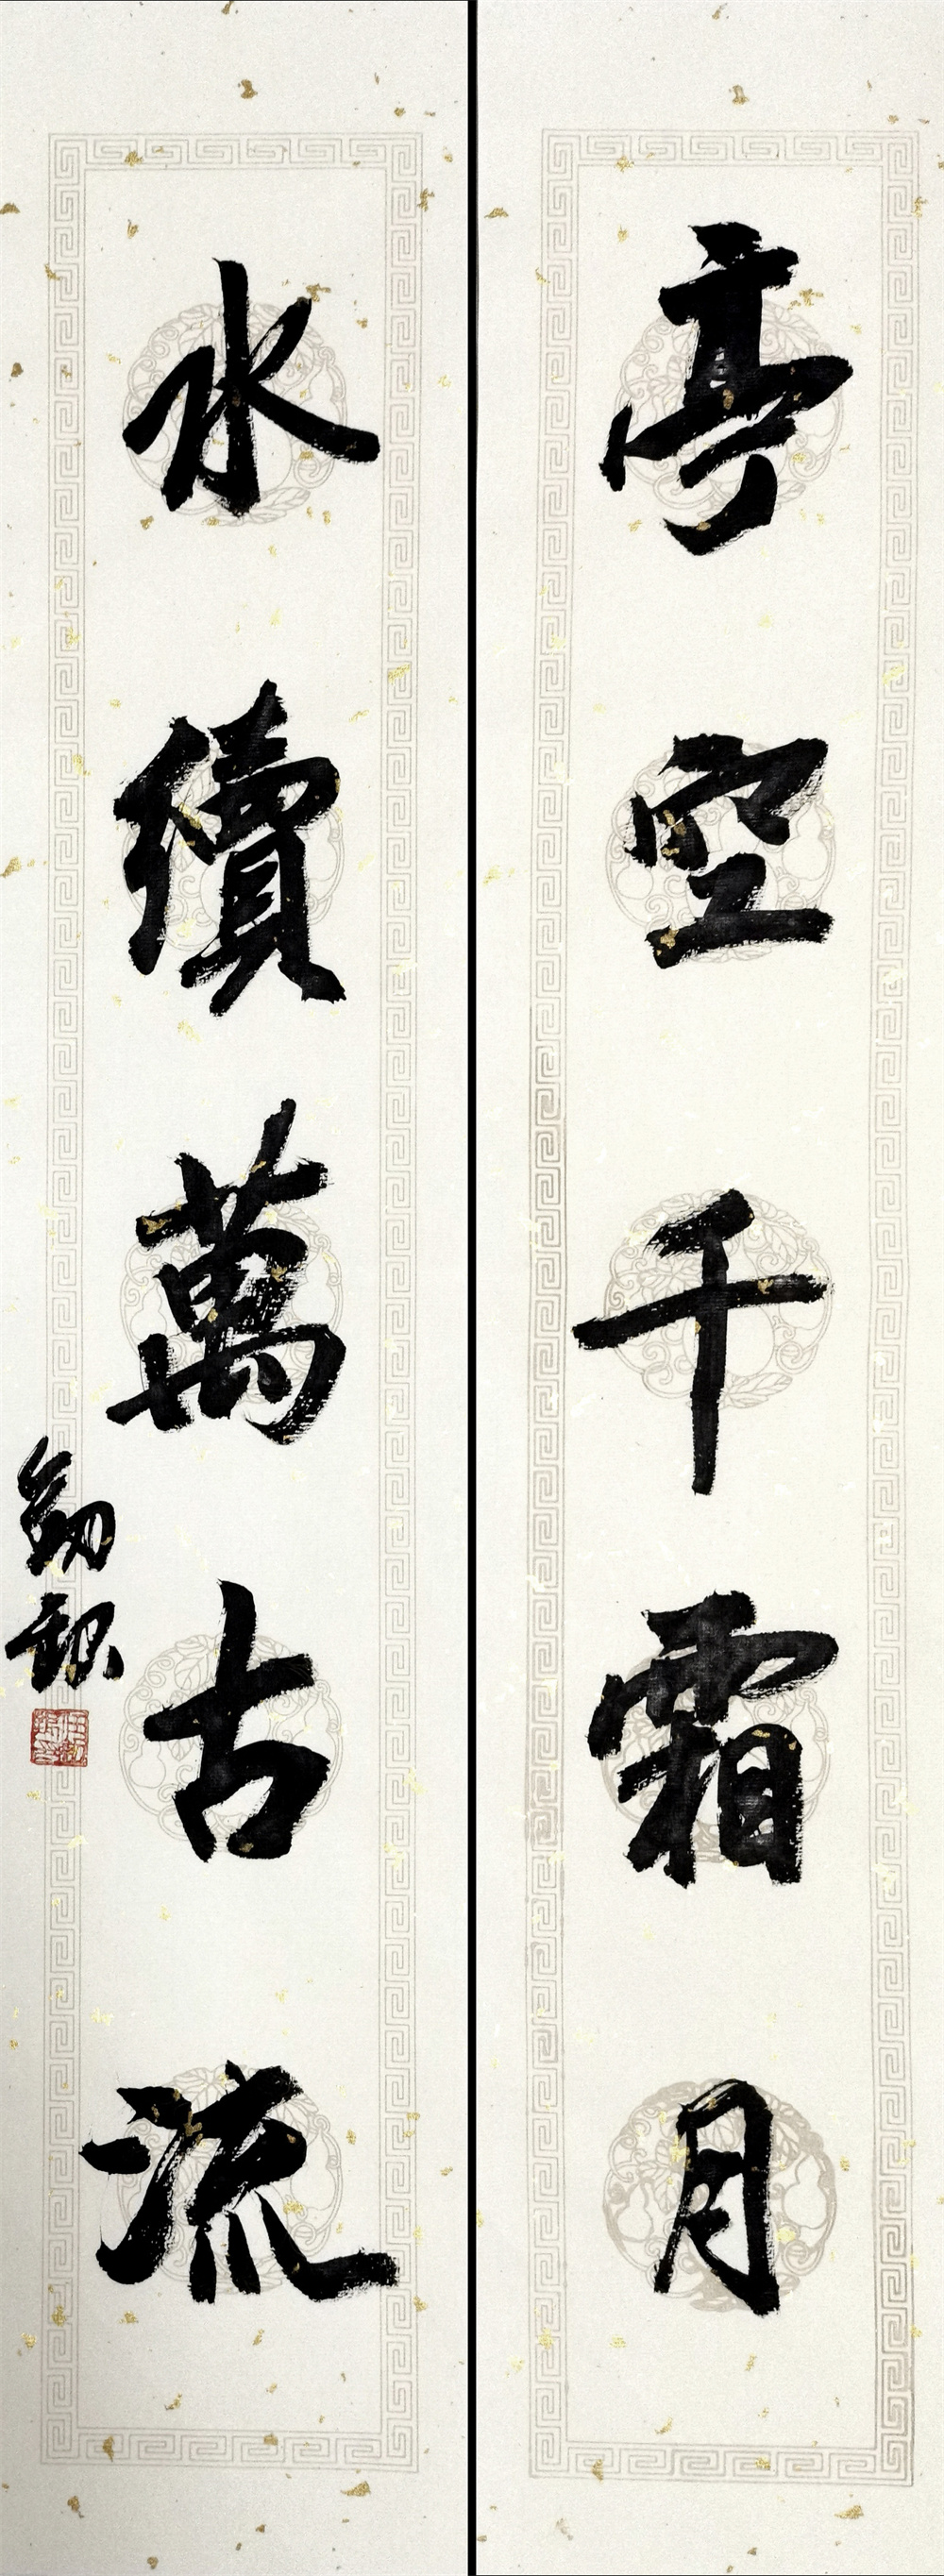 亭空千霜月
水續萬古流